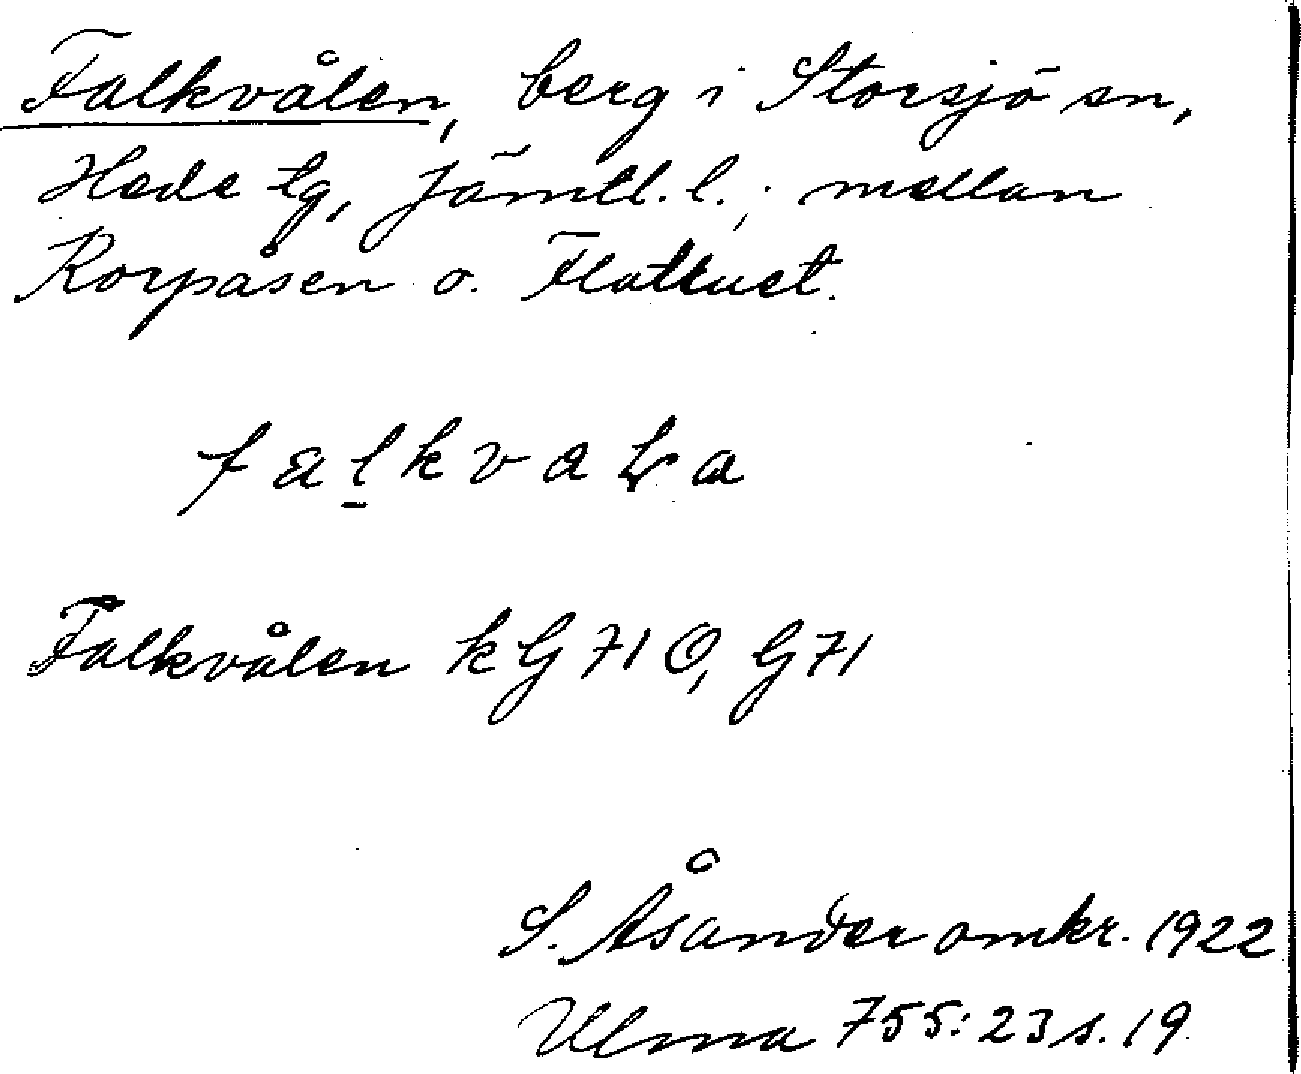 Falkvålen, berg i Storsjö sn,
Hede tg, Jämtl. l.; mellan
Korpåsen o. Flatruet.
falkvaLa
Falkvålen kG 71 Ö, G 71
S. Åsander omkr. 1922
Ulma 755:23 s. 19